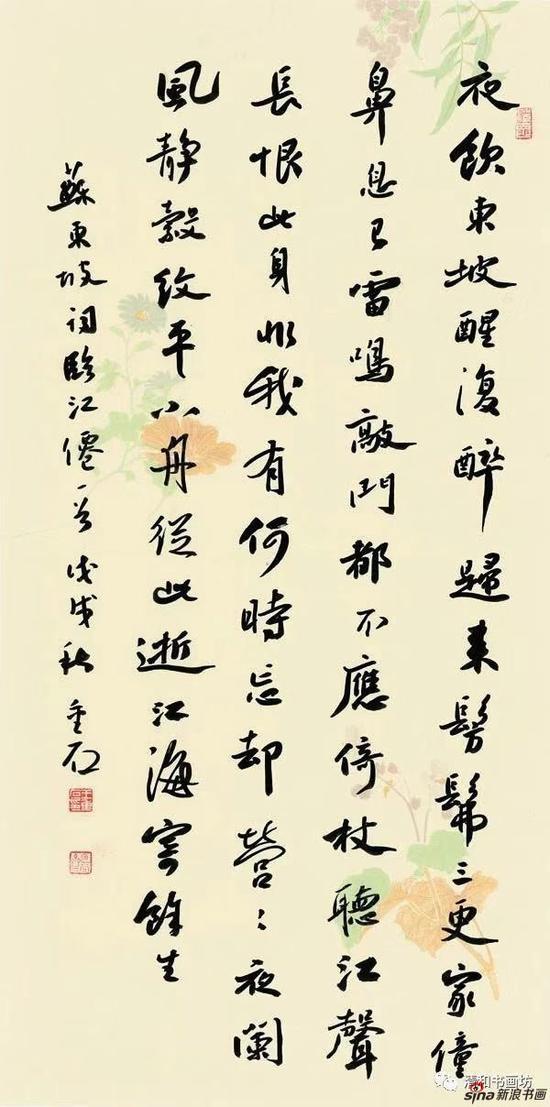 夜飲東坡醒復醉歸来髣髴三更家僮
鼻息已雷鳴敲門都不應倚杖聽江聲
長恨此身非我有何時忘却營〻夜闌
風靜縠紋平小舟從此逝江海寄餘生
蘇東坡詞臨江僊一首 戊戌秋
和书画坊
sina新浪书画